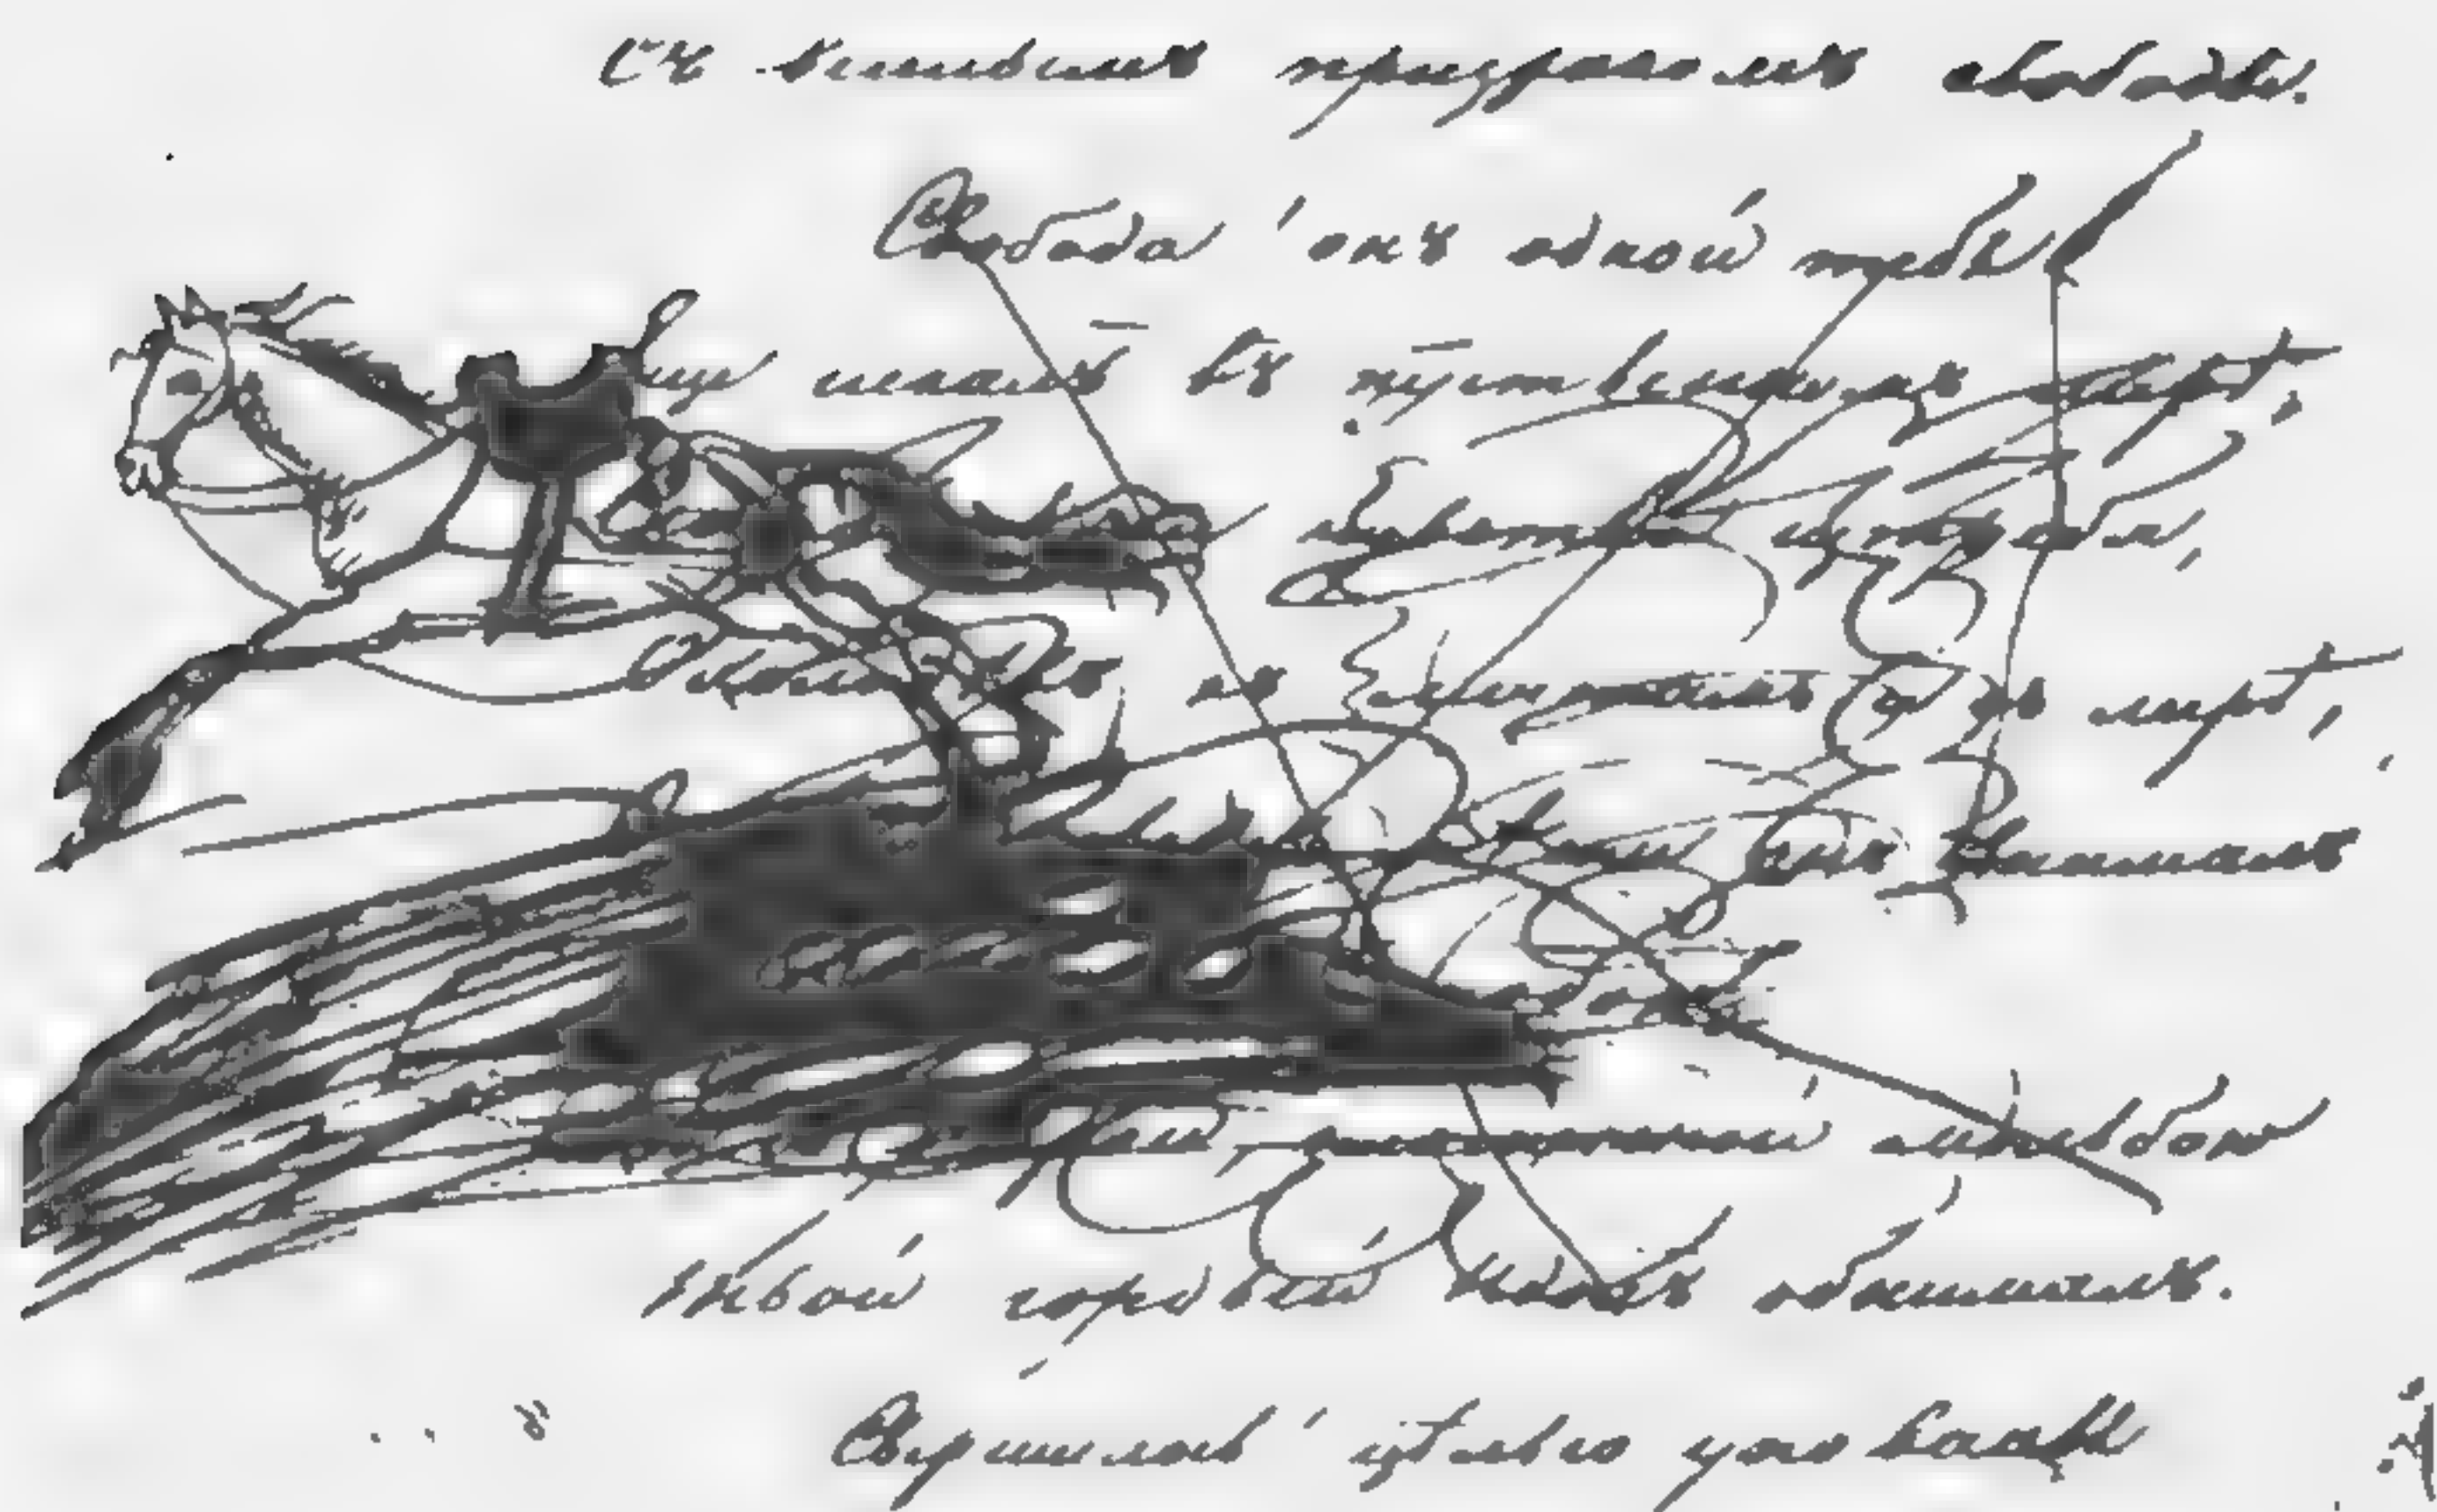 Съ веселымъ призракомъ свободы.
Свобода! онъ одной тебя
Еще искалъ въ пустынномъ мірѣ,
чувства истребя,
Охолодѣвъ къ мечтамъ и къ лирѣ,
онъ внималъ
пламенной мольбою
Твой гордый идолъ обнималъ.
Свершилось! цѣлью упованья